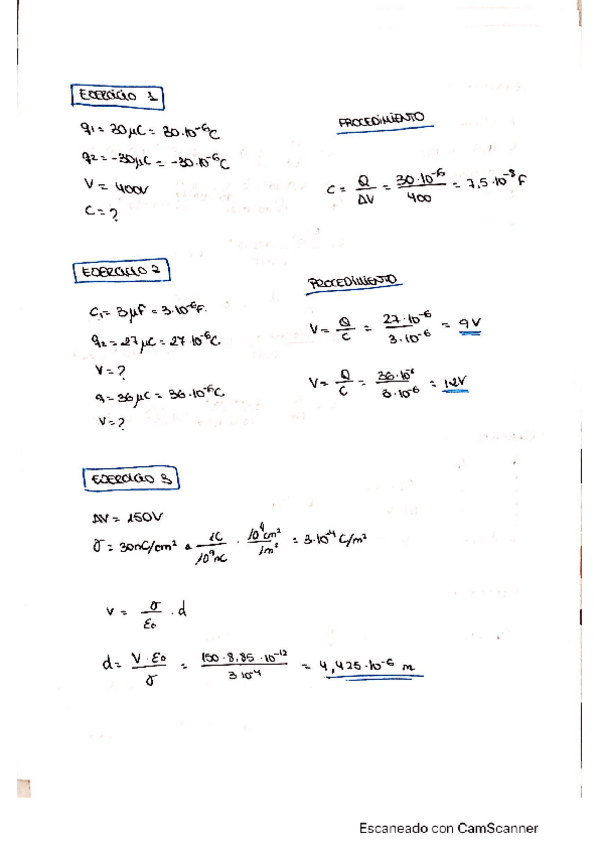 EJERCICIO 1
q1 = 30μC = 30·10⁻⁶C
q2 = -30μC = -30·10⁻⁶C
V = 400V
C = ?
PROCEDIMIENTO
C = Q/ΔV = 30·10⁻⁶/400 = 7,5·10⁻⁸ F
EJERCICIO 2
C1 = 3μf = 3·10⁻⁶F.
q2 = 27μC = 27·10⁻⁶C
V = ?
q = 36μC = 36·10⁻⁶C
V = ?
PROCEDIMIENTO
V = Q/C = 27·10⁻⁶/3·10⁻⁶ = 9V
V = Q/C = 36·10⁻⁶/3·10⁻⁶ = 12V
EJERCICIO 3
ΔV = 150V
σ = 30nC/cm² · 1C/10⁹nC · 10⁴cm²/1m² = 3·10⁻⁴ C/m²
V = σ/ε₀ · d
d = V·ε₀/σ = 150·8,85·10⁻¹²/3·10⁻⁴ = 4,425·10⁻⁶ m
Escaneado con CamScanner